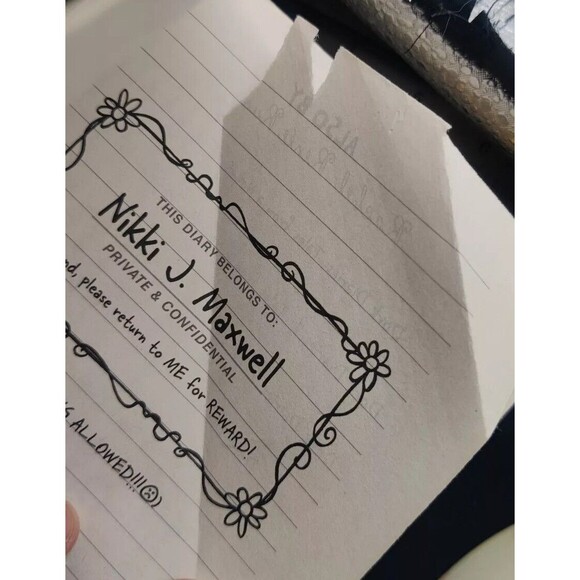 THIS DIARY BELONGS TO:
Nikki J. Maxwell
PRIVATE & CONFIDENTIAL
please return to ME for REWARD!
ALLOWED!!!☹)
ALSO BY